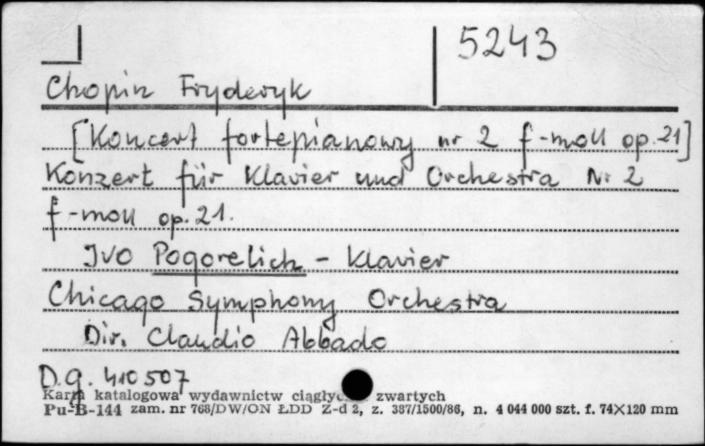 5243
Chopin Fryderyk
[Koncert fortepianowy nr 2 f-moll op.21]
Konzert für Klavier und Orchestra Nr 2
f-moll op.21.
Ivo Pogorelich - Klavier
Chicago Symphony Orchestra
Dir. Claudio Abbado
D.g. 410507
Karta katalogowa wydawnictw zwartych
Pu-B-144 zam. nr 768/DW/ON ŁDD Z-d 2, z. 387/1500/86, n. 4 044 000 szt. f. 74×120 mm